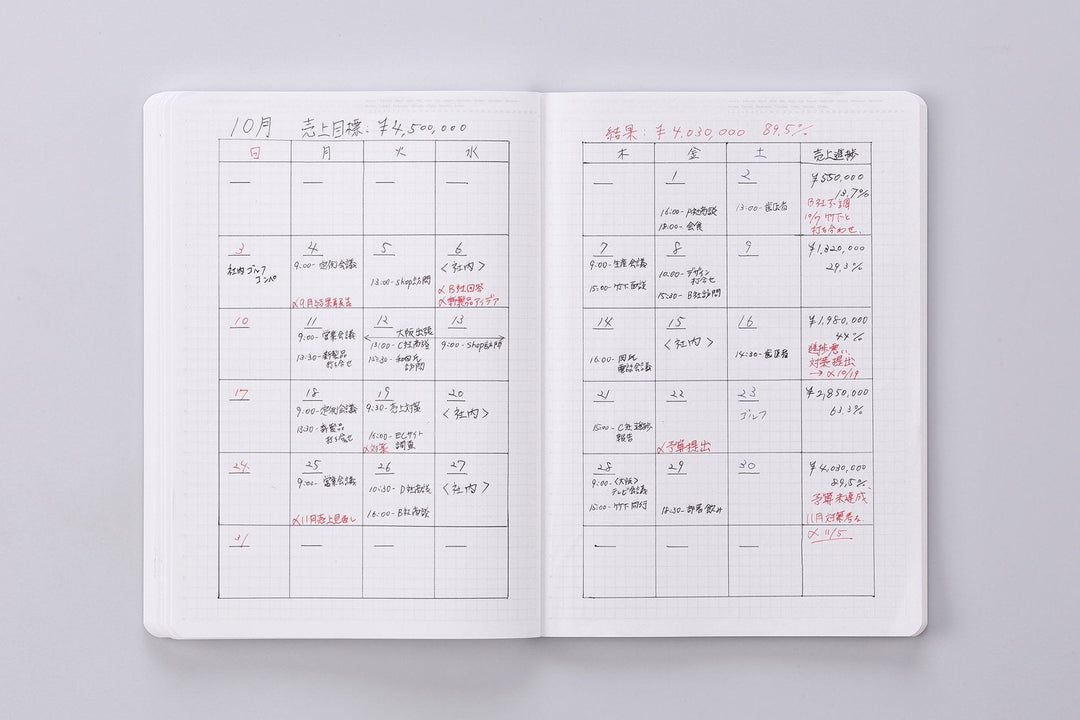 10月 売上目標：¥4,500,000
日 月 火 水
— — — —
3 4 5 6
社内ゴルフ
コンペ
9:00- 定例会議
〆9月結果報告
13:00- shop訪問
<社内>
〆B社回答
〆新製品アイデア
10 11 12 13
9:00- 営業会議
13:30- 新製品
打ち合せ
大阪出張
13:00- C社商談
訪問
9:00- shop訪問
17 18 19 20
9:00- 定例会議
13:30- 新製品
打ち合せ
9:30- 売上対策
16:00- ECサイト
調査
〆対策
<社内>
24 25 26 27
9:00- 営業会議
〆11月売上見直し
10:30- D社商談
16:00- B社商談
<社内>
31 — — —
結果：¥4,030,000 89.5%
木 金 土 売上進捗
— 1 2
16:00- A社商談
18:00- 会食
13:00- 歯医者
¥550,000
13.7%
B社不調
10/7 竹下と
打ち合わせ。
7 8 9
9:00- 生産会議
15:00- 竹下面談
10:00- デザイン
打合せ
15:30- B社訪問
¥1,320,000
29.3%
14 15 16
16:00- 岡氏
電話会議
<社内>
14:30- 歯医者
¥1,980,000
44%
進捗悪い、
対策提出
→〆10/19
21 22 23
15:00- C社進捗
報告
〆予算提出
ゴルフ
¥2,850,000
63.3%
28 29 30
9:00- <大阪>
テレビ会議
15:00- 竹下同行
18:30- 部署飲み
¥4,030,000
89.5%
予算未達成
11月対策考える
〆11/5
— — —